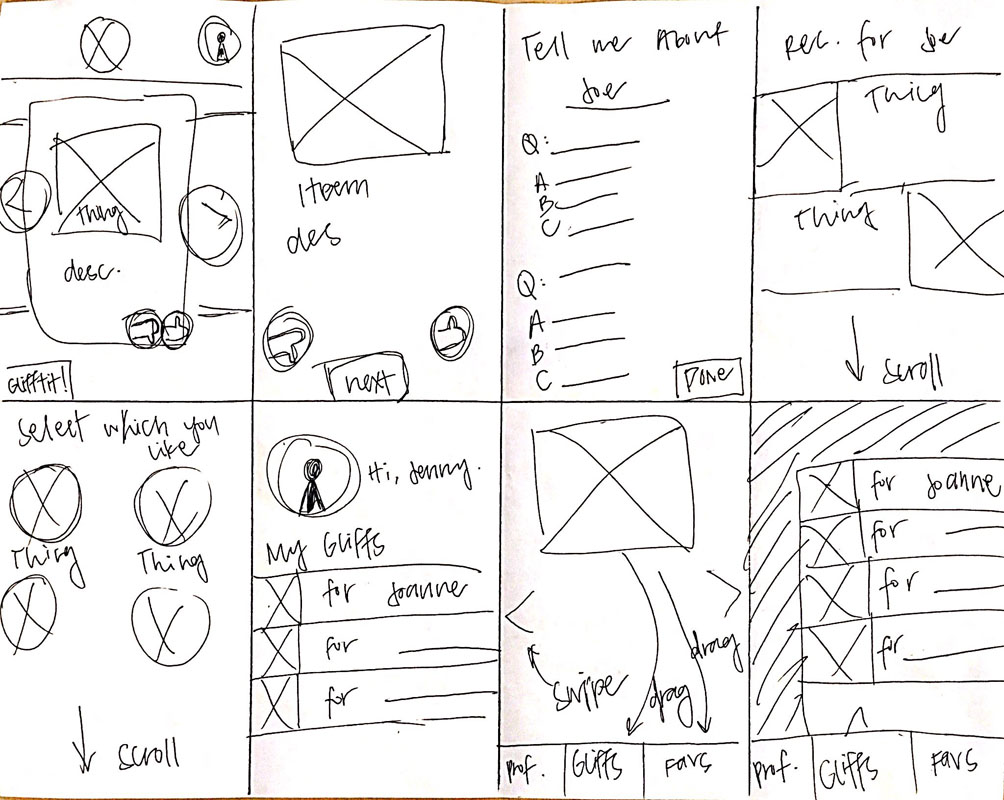 Thing
desc.
Glifftit!
Item
des
next
Tell me About
Joe
Q:
A
B
C
Q:
A
B
C
DONE
Rec. for Joe
Thing
Thing
scroll
Select which you
like
Thing
Thing
scroll
Hi, Jenny.
My Gliffs
for Joanne
for
for
swipe
drag
drag
prof. Gliffs Favs
for Joanne
for
for
for
prof. Gliffs Favs